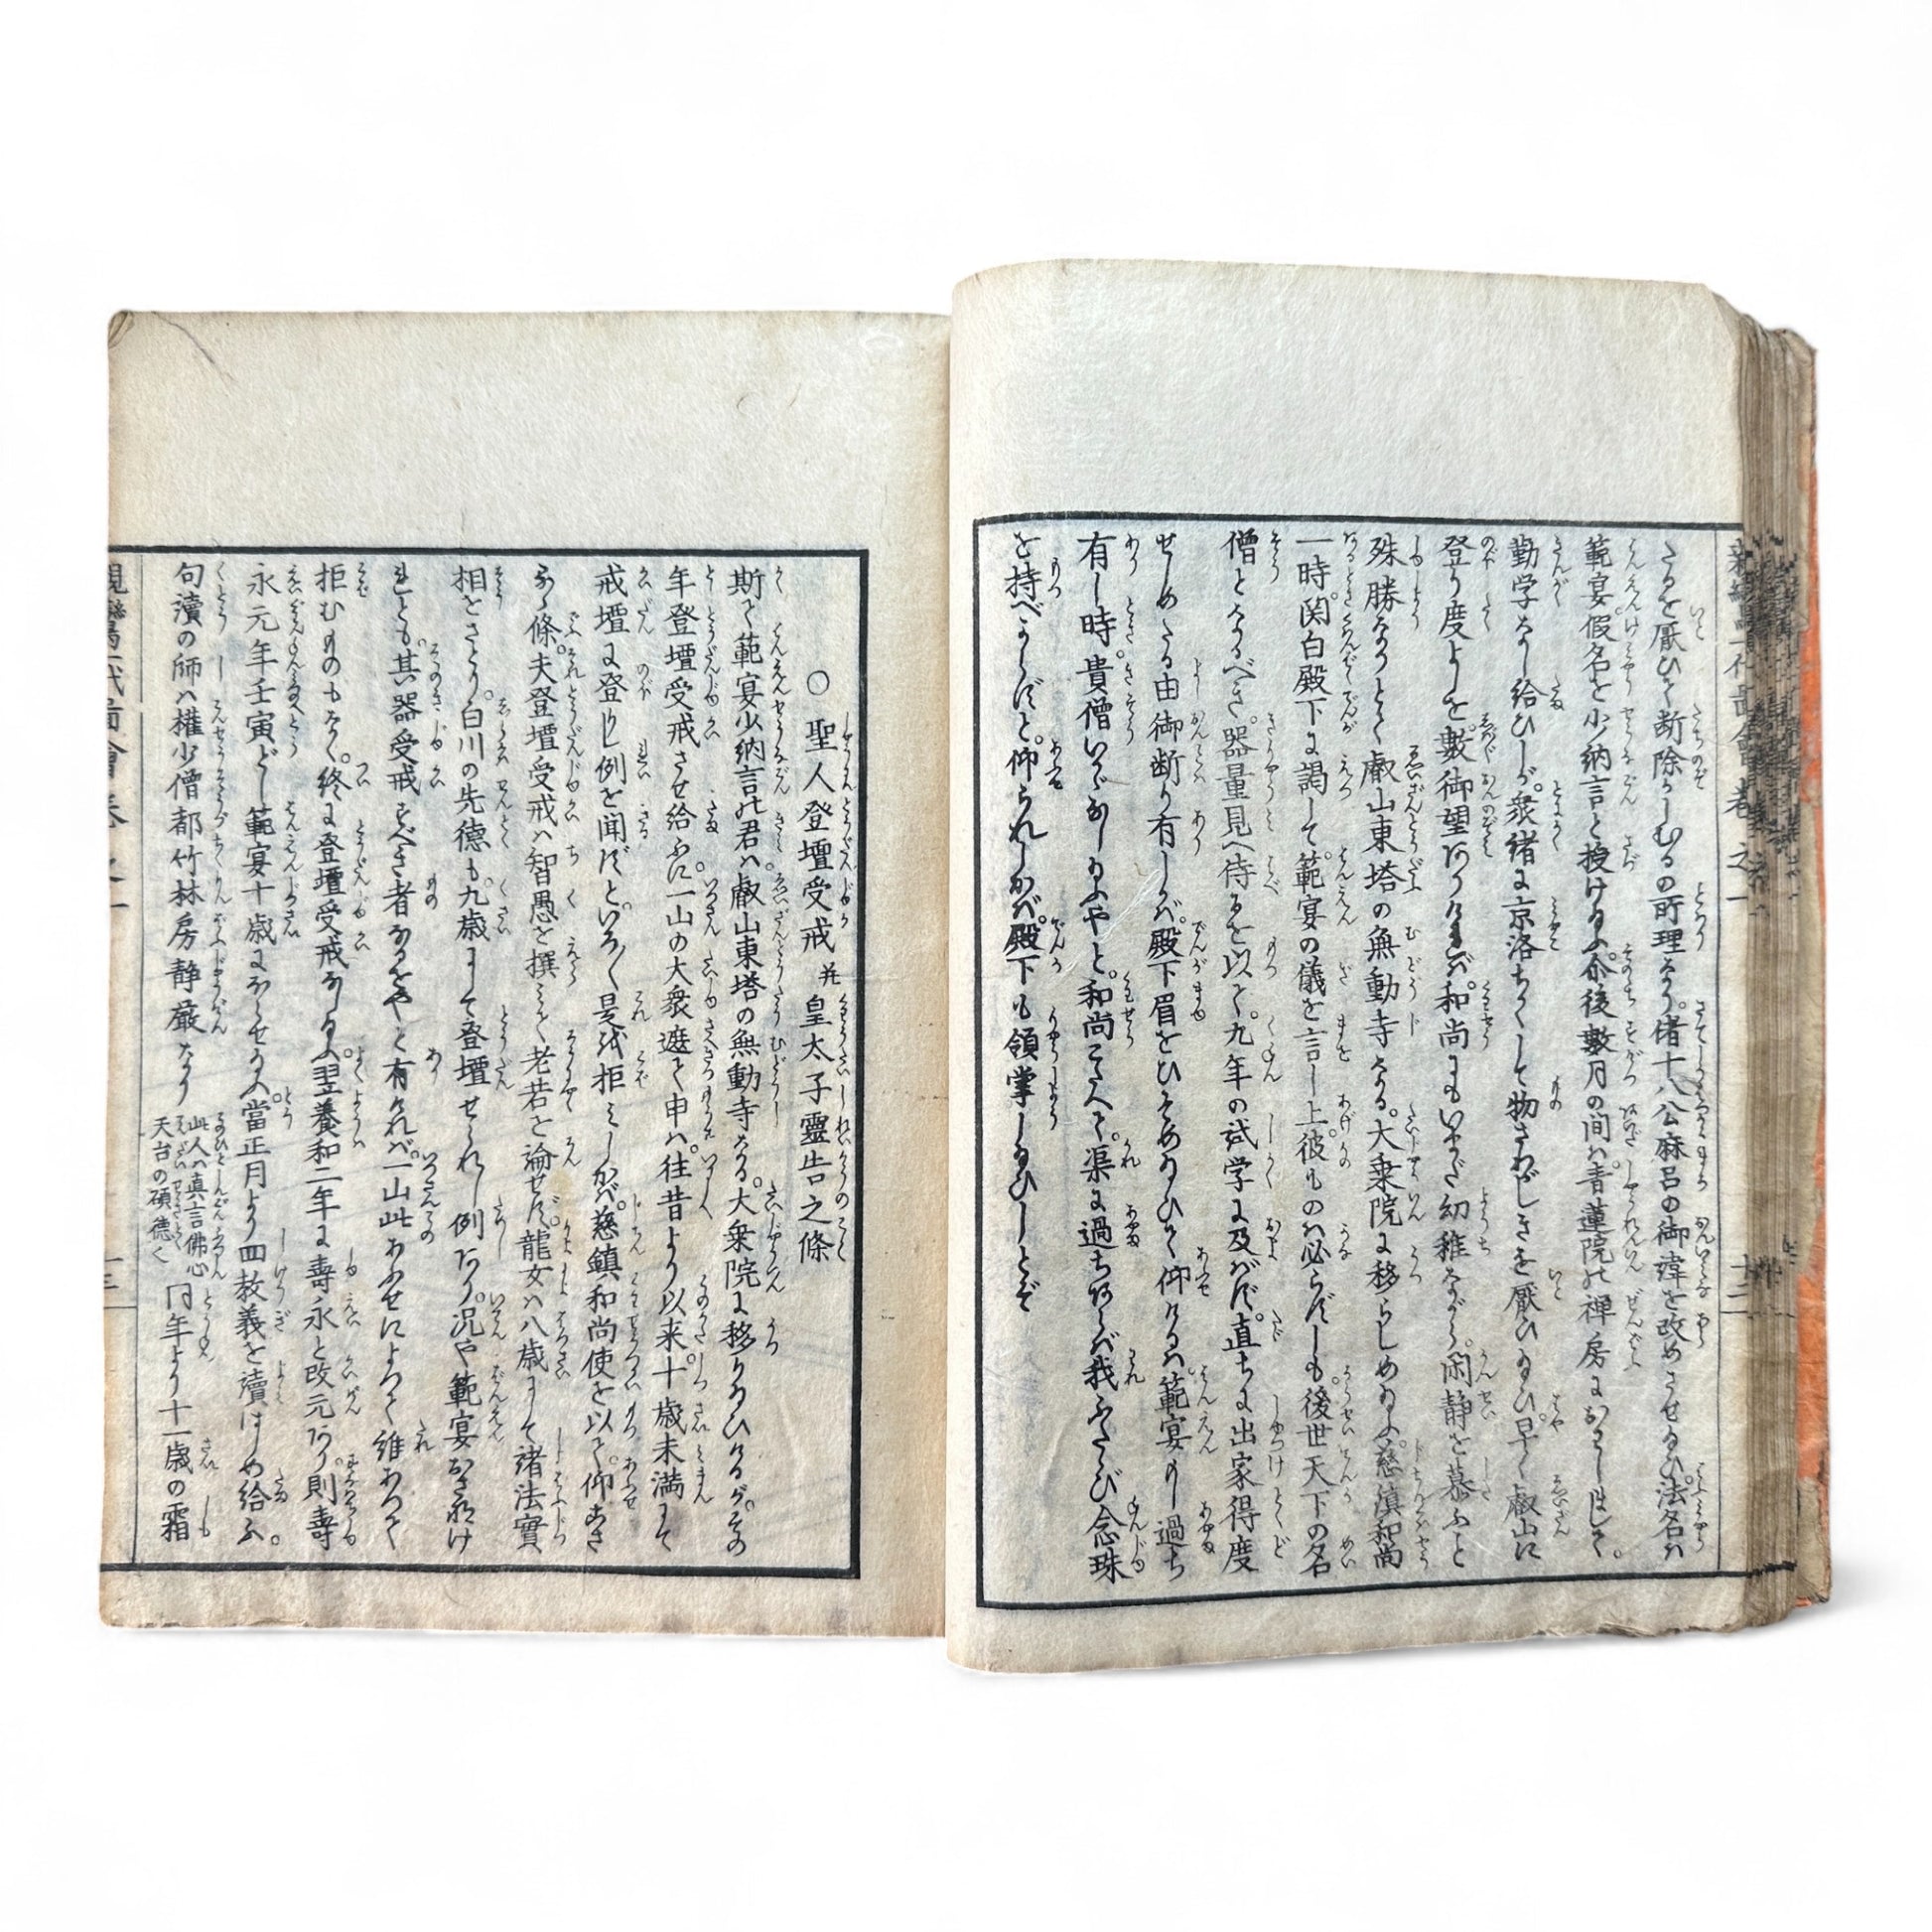 さるを厭ひて断除かしむるの所理なり。偖十八公麻呂の御諱を改めさせ給ひ。法名ハ
範宴。假名を少納言と授け給ふ。介後数月の間ハ。青蓮院の禅房におはしまして。
勤学なし給ひしが。衆緒に京洛ちかくして物さわがしきを厭ひ給ひ。早く叡山に
登り度よしを。数御望ありけれバ。和尚にもいまだ幼稚ながら。閑静を慕ふと
殊勝なりとて。叡山東塔の無動寺なる。大乗院に移らしめ給ふ。慈鎮和尚
一時。関白殿下に謁して。範宴の儀を言し上。彼ものハ必らずしも。後世天下の名
僧となるべき。器量見へ侍るを以て。九年の試学に及バず。直ちに出家得度
せしめたる由御断り有しかバ。殿下眉をひそめ給ひて仰けるハ。範宴もし過ち
有し時。貴僧いかゞし給ふやと。和尚こたへて。渠に過ちあらバ我ふたゝび念珠
を持べからずと。仰られしかバ。殿下も領掌し給ひしとぞ
新編 一代 會 巻之一 十二
○聖人登壇受戒 并 皇太子靈告之條
斯て範宴少納言の君ハ。叡山東塔の無動寺なる。大乗院に移り給ひけるが。その
年登壇受戒させ給ふに。一山の大衆遮て申ハ。往昔より以来。十歳未満にて
戒壇に登りし例を聞ずと。いろ〳〵是を拒ミしかバ。慈鎮和尚使を以て。仰こさ
るゝ條。夫登壇受戒ハ智愚を撰ミて老若を論せず。龍女ハ八歳にして諸法實
相をさとり。白川の先徳も。九歳にして登壇せられし例あり。況や範宴おさなけ
れとも。其器受戒すべき者なるをやと有けれバ。一山此おふせによつて誰あつて
拒むものもなく。終に登壇受戒なし給ふ。翌養和二年に壽永と改元あり。則壽
永元年壬寅どし。範宴十歳にならせ給ふ。當正月より四教義を讀はじめ給ふ。
句讀の師ハ権少僧都竹林房静厳なり 此人ハ真言佛心天台の碩徳く 同年より十一歳の霜
親鸞一代啚會巻之一 十三